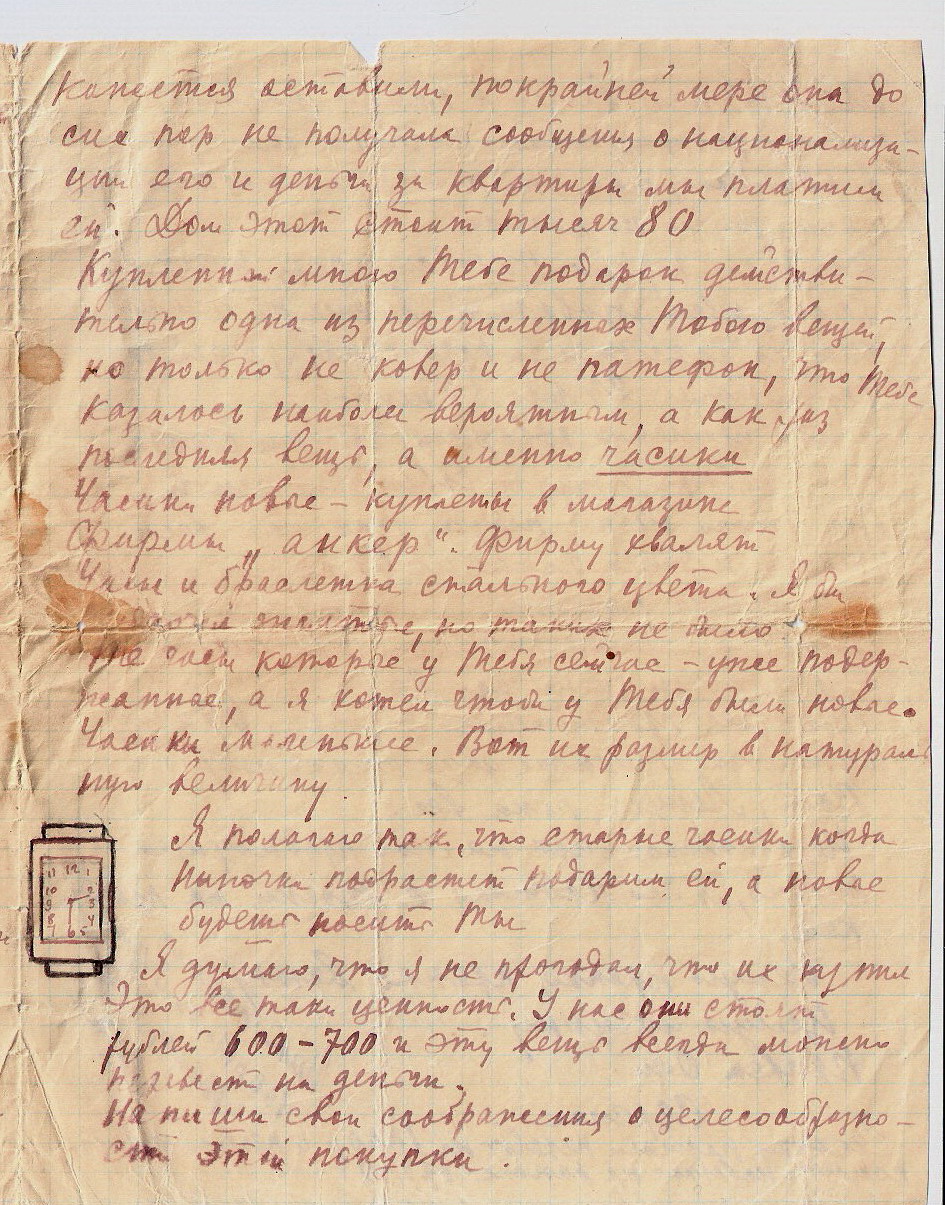 кажется оставили, покрайней мере она до
сих пор не получала сообщения о национализа-
ции его и деньги за квартиры мы платили
ей. Дом этот стоит тысяч 80
Купленный мною Тебе подарок действи-
тельно одна из перечисленных Тобою вещей,
но только не ковер и не патефон, что Тебе
казалось наиболее вероятным, а как раз
последняя вещь, а именно часики
Часики новые – куплены в магазине
Фирмы „анкер“. Фирму хвалят
Часы и браслетка стального цвета. Я бы
золотые, но таких не было.
Те часы которые у Тебя сейчас – уже подер-
жанные, а я хотел чтобы у Тебя были новые.
Часики маленькие. Вот их размер в натураль
ную величину
11 12 1
10 2
9 3
8 4
7 6 5
Я полагаю так, что старые часики когда
Ниночка подрастет подарим ей, а новые
будешь носить Ты
Я думаю, что я не прогадал, что их купил
Это все таки ценность. У нас они стоят
рублей 600–700 и эту вещь всегда можно
перевести на деньги.
Напиши свои соображения о целесообразно-
сти этой покупки.